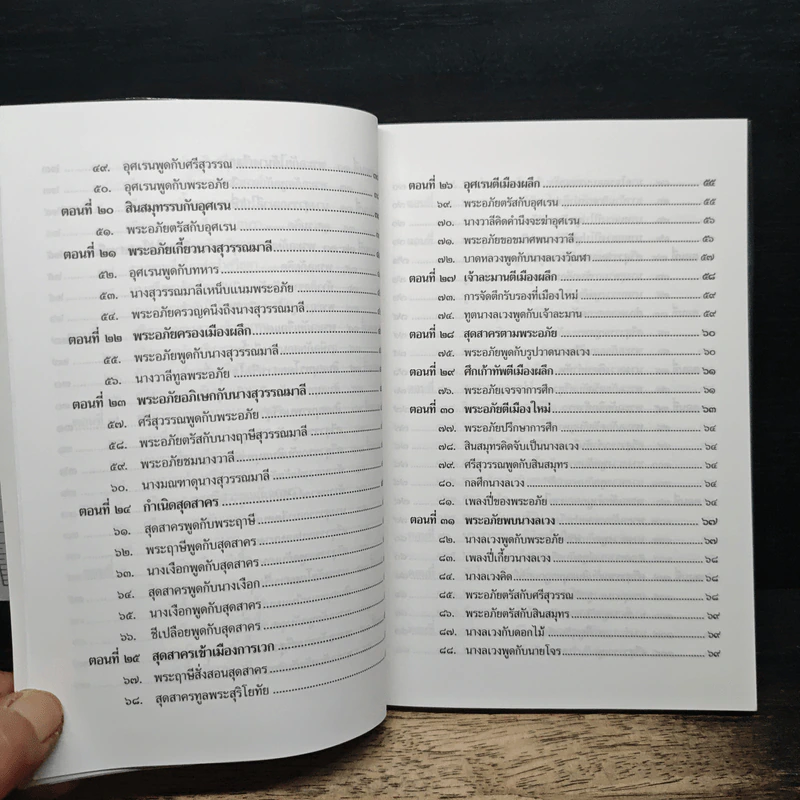 ๔๙. อุศเรนพูดกับศรีสุวรรณ
๕๐. อุศเรนพูดกับพระอภัย
ตอนที่ ๒๐ สินสมุทรรบกับอุศเรน
๕๑. พระอภัยตรัสกับอุศเรน
ตอนที่ ๒๑ พระอภัยเกี้ยวนางสุวรรณมาลี
๕๒. อุศเรนพูดกับทหาร
๕๓. นางสุวรรณมาลีเหน็บแนมพระอภัย
๕๔. พระอภัยครวญคนึงถึงนางสุวรรณมาลี
ตอนที่ ๒๒ พระอภัยครองเมืองผลึก
๕๕. พระอภัยพูดกับนางสุวรรณมาลี
๕๖. นางวาลีทูลพระอภัย
ตอนที่ ๒๓ พระอภัยอภิเษกกับนางสุวรรณมาลี
๕๗. ศรีสุวรรณพูดกับพระอภัย
๕๘. พระอภัยตรัสกับนางฤาษีสุวรรณมาลี
๕๙. พระอภัยชมนางวาลี
๖๐. นางมณฑาดุนางสุวรรณมาลี
ตอนที่ ๒๔ กำเนิดสุดสาคร
๖๑. สุดสาครพูดกับพระฤาษี
๖๒. พระฤาษีพูดกับสุดสาคร
๖๓. นางเงือกพูดกับสุดสาคร
๖๔. สุดสาครพูดกับนางเงือก
๖๕. นางเงือกพูดกับสุดสาคร
๖๖. ชีเปลือยพูดกับสุดสาคร
ตอนที่ ๒๕ สุดสาครเข้าเมืองการเวก
๖๗. พระฤาษีสั่งสอนสุดสาคร
๖๘. สุดสาครทูลพระสุริโยทัย
ตอนที่ ๒๖ อุศเรนตีเมืองผลึก ๕๕
๖๙. พระอภัยตรัสกับอุศเรน ๕๕
๗๐. นางวาลีคิดคำนึงจะฆ่าอุศเรน ๕๖
๗๑. พระอภัยขอขมาศพนางวาลี ๕๖
๗๒. บาดหลวงพูดกับนางลเวงวัณฬา ๕๗
ตอนที่ ๒๗ เจ้าละมานตีเมืองผลึก ๕๘
๗๓. การจัดตึกรับรองที่เมืองใหม่ ๕๙
๗๔. ทูตนางลเวงพูดกับเจ้าละมาน ๕๙
ตอนที่ ๒๘ สุดสาครตามพระอภัย ๖๐
๗๕. พระอภัยพูดกับรูปวาดนางลเวง ๖๐
ตอนที่ ๒๙ ศึกเก้าทัพตีเมืองผลึก ๖๑
๗๖. พระอภัยเจรจาการศึก ๖๑
ตอนที่ ๓๐ พระอภัยตีเมืองใหม่ ๖๓
๗๗. พระอภัยปรึกษาการศึก ๖๓
๗๘. สินสมุทรคิดจับเป็นนางลเวง ๖๔
๗๙. ศรีสุวรรณพูดกับสินสมุทร ๖๔
๘๐. กลศึกนางลเวง ๖๔
๘๑. เพลงปี่ของพระอภัย ๖๔
ตอนที่ ๓๑ พระอภัยพบนางลเวง ๖๗
๘๒. นางลเวงพูดกับพระอภัย ๖๗
๘๓. เพลงปี่เกี้ยวนางลเวง ๖๘
๘๔. นางลเวงคิด ๖๘
๘๕. พระอภัยตรัสกับศรีสุวรรณ ๖๘
๘๖. พระอภัยตรัสกับสินสมุทร ๖๙
๘๗. นางลเวงกับดอกไม้ ๖๙
๘๘. นางลเวงพูดกับนายโจร ๖๙